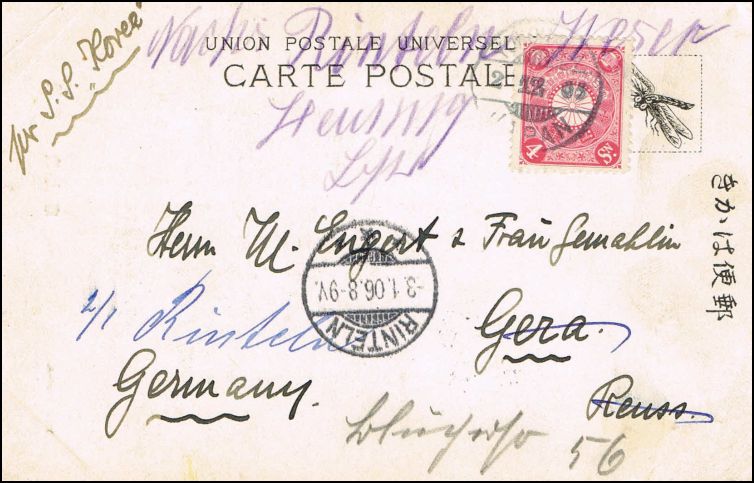 per S.S. "Korea"
Nach Rinteln Weser
UNION POSTALE UNIVERSELLE
CARTE POSTALE
2 12 05
JAPAN
4 Sn
きかは便郵
Herrn M. Engert & Frau Gemahlin
RINTELN
-3.1.06.8-9V.
2/1 Rinteln
Gera.
Germany.
Reuss.
56